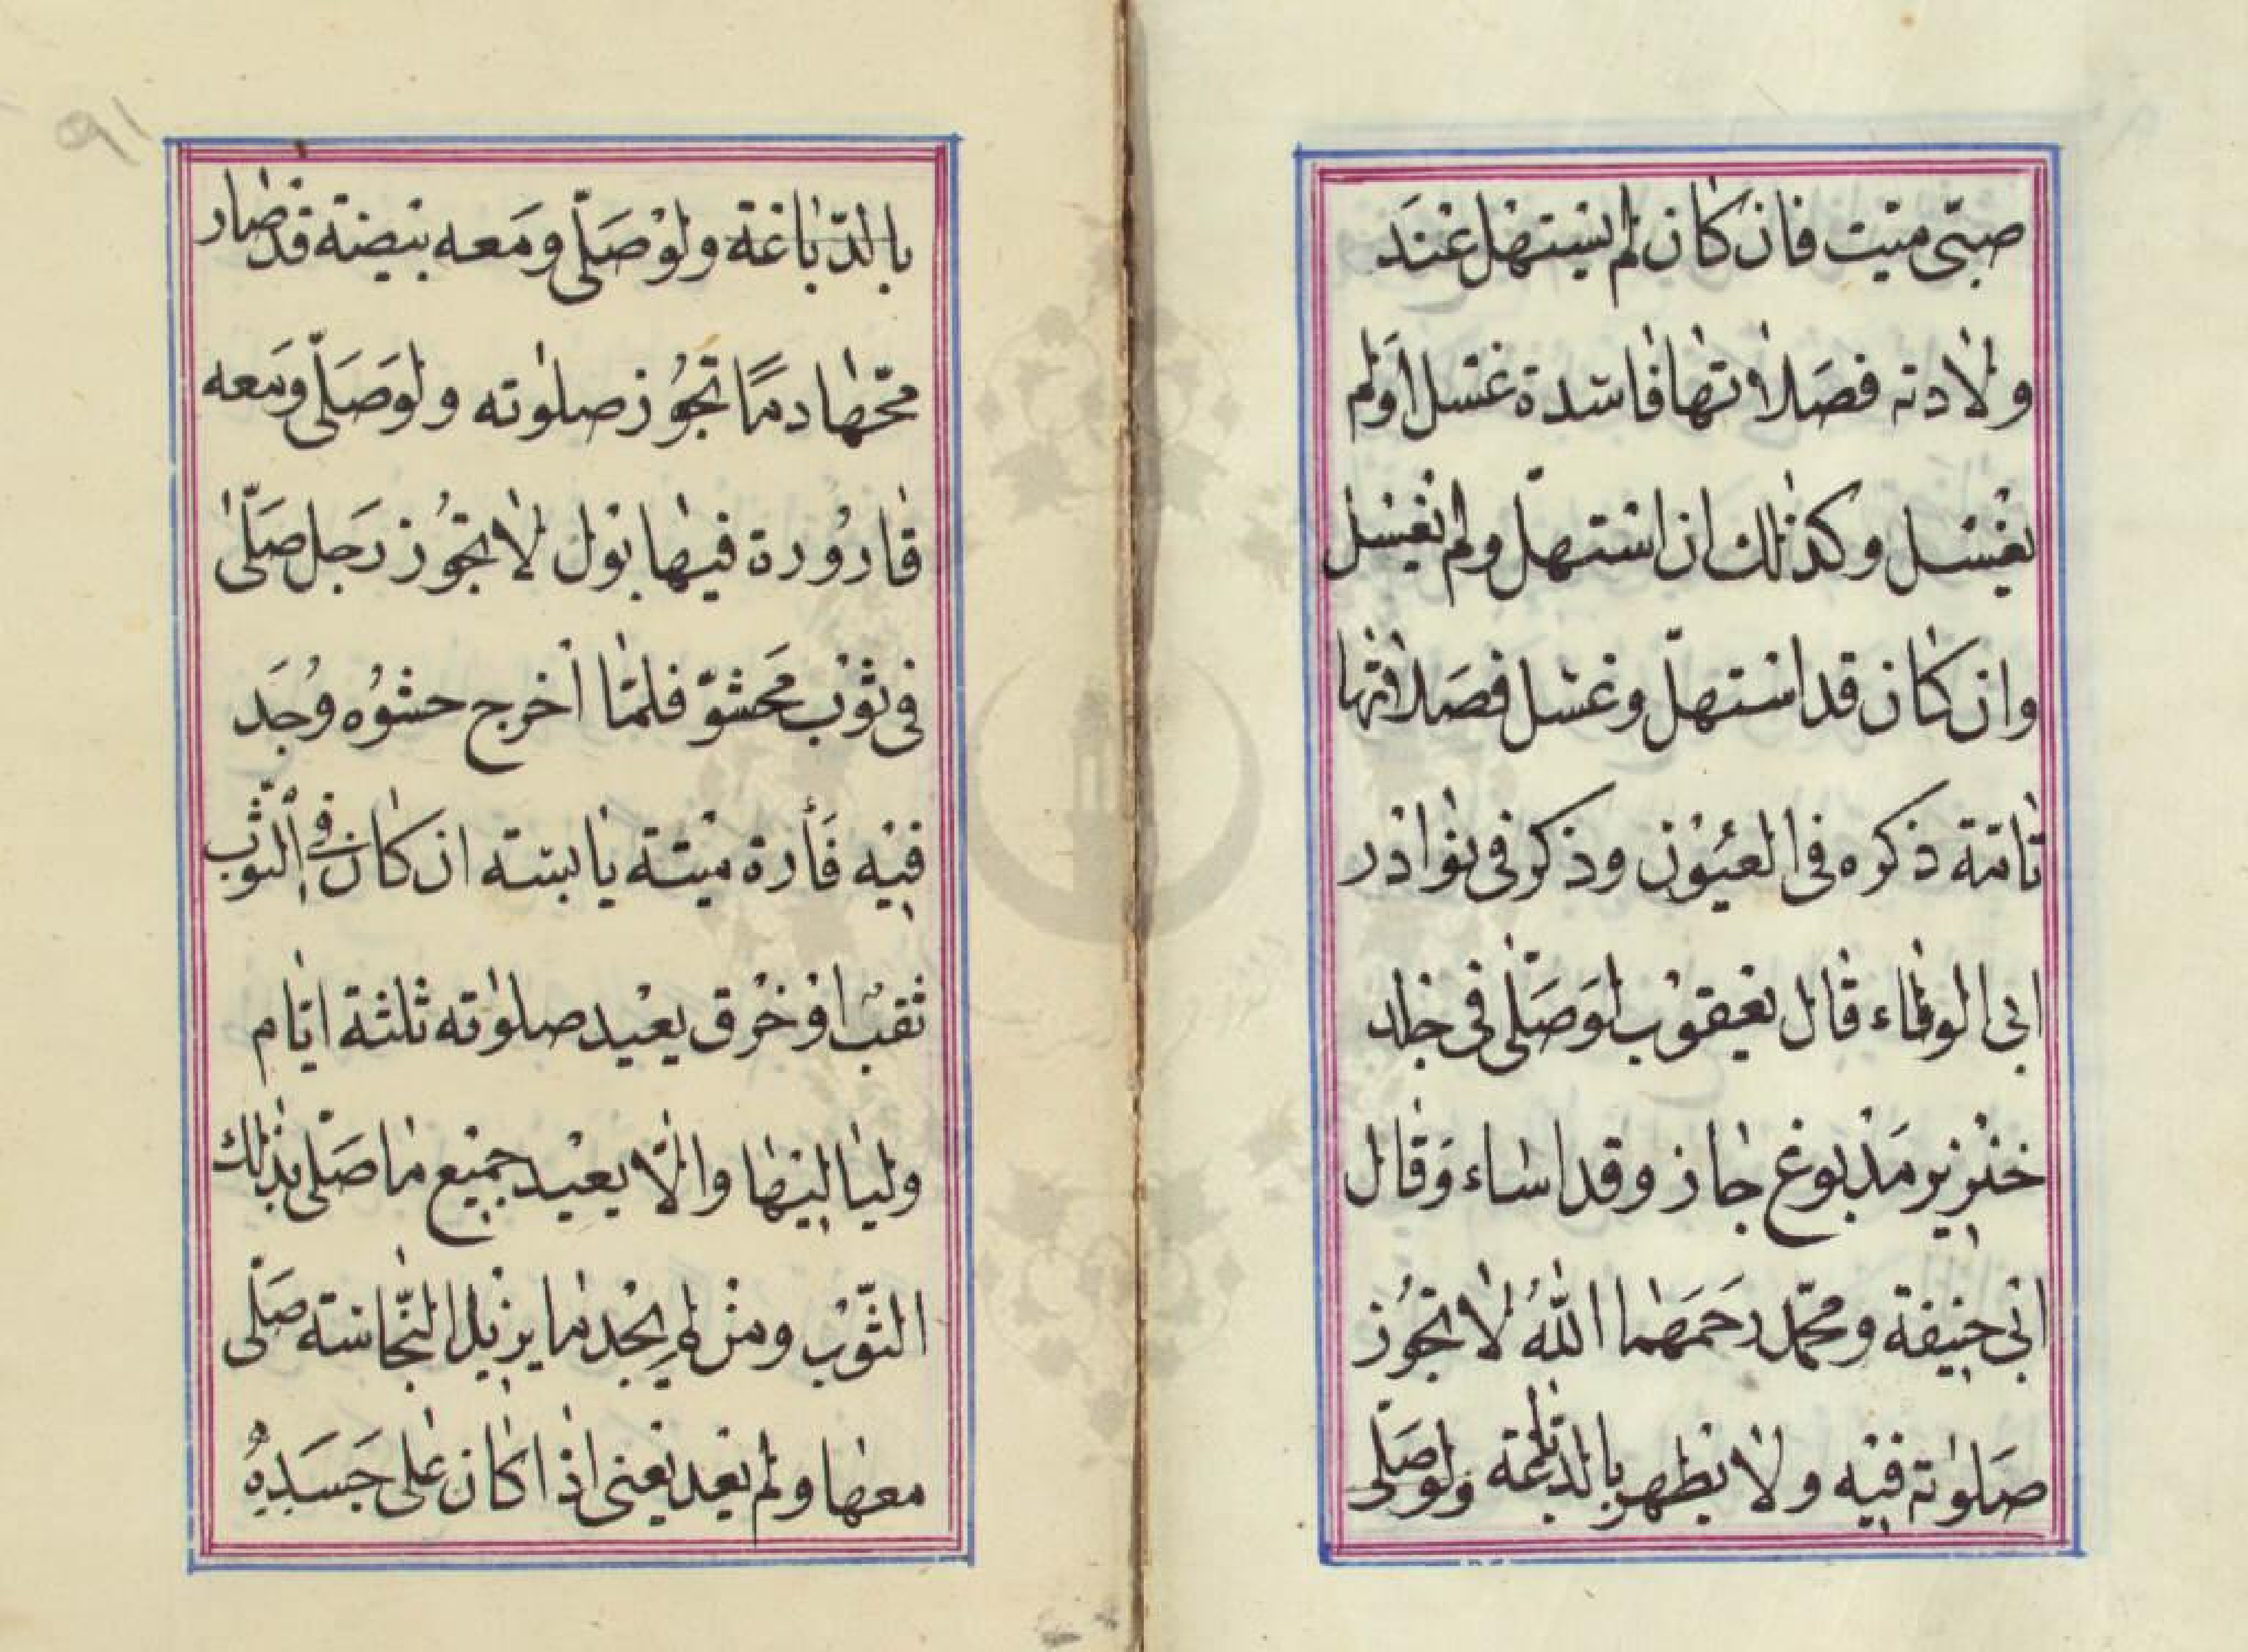 صبّى ميّت فان كان لم يستهل عند
ولادته فصلاتها فاسدة غسل اولم
يغسل وكذلك ان استهلّ ولم يغسل
وان كان قد استهلّ وغسل فصلاتها
تامّة ذكره فى العيون وذكر فى نوادر
ابى الوفاء قال يعقوب لوصلّى فى جلد
خنزير مدبوغ جاز وقد اساء وقال
ابى حنيفة ومحمّد رحمهما اللهُ لا تجوز
صلوته فيه ولا يطهر بالدّباغة ولوصلّى
بالدّباغة ولوْ صلّى ومعه بيضة قد صار
محّها دمًا تجوز صلوته ولوصلّى ومعه
قارورة فيها بول لا تجوز رجل صلّى
فى ثوب محشوّ فلمّا أخرج حشوُه وُجد
فيه فأرة ميتة يابسة ان كان فى الثّوب
ثقب او خرق يعيد صلوته ثلثة ايّام
ولياليها والّا يعيد جميع ما صلّى بذلك
الثّوب ومن لم يجد ما يزيل النّجاسة صلّى
معها ولم يعد يعنى اذا كان على جسدهُ
٩١